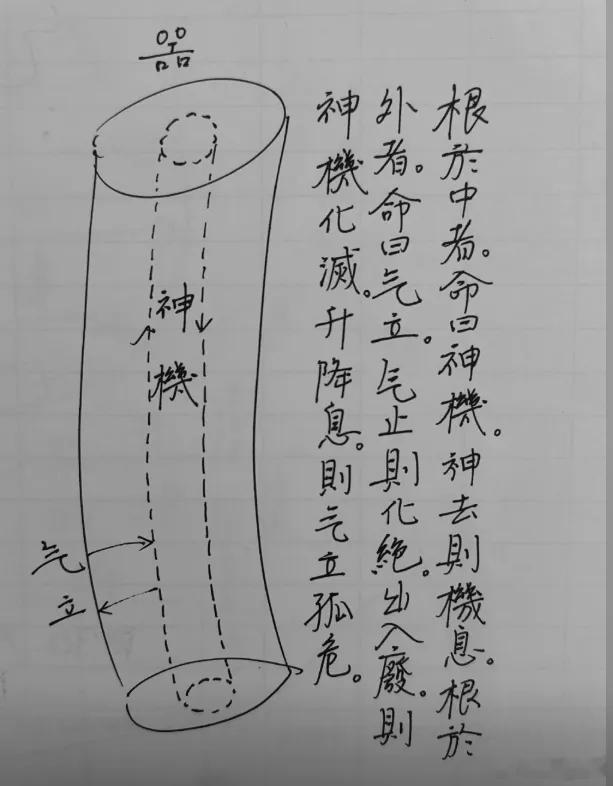 根於中者。命曰神機。神去則機息。根於
外者。命曰气立。气止則化絶。出入廢。則
神機化滅。升降息。則气立孤危。
神
機
气
立